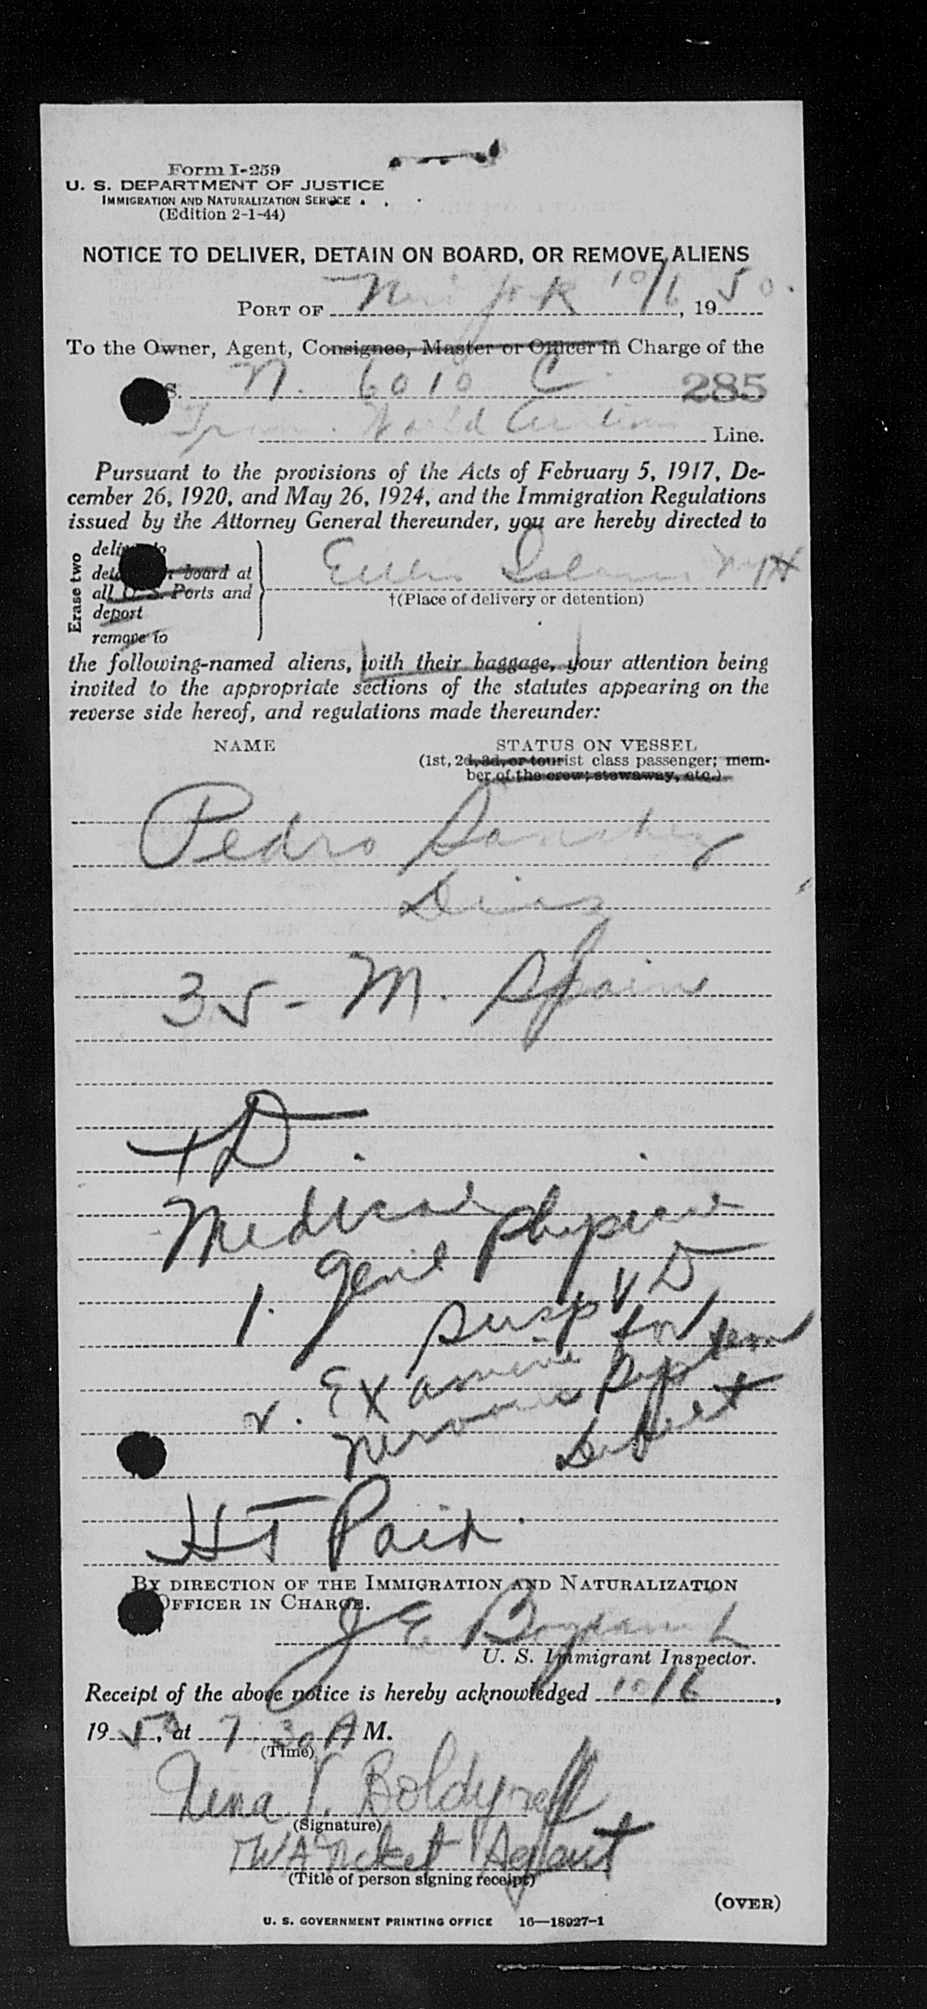 Form I-259
U. S. DEPARTMENT OF JUSTICE
IMMIGRATION AND NATURALIZATION SERVICE
(Edition 2-1-44)
NOTICE TO DELIVER, DETAIN ON BOARD, OR REMOVE ALIENS
PORT OF New York 10/6, 1950.
To the Owner, Agent, Consignee, Master or Officer in Charge of the
S. N. 6010 C. 285
Trans. World Line.
Pursuant to the provisions of the Acts of February 5, 1917, De-
cember 26, 1920, and May 26, 1924, and the Immigration Regulations
issued by the Attorney General thereunder, you are hereby directed to
Erase two
deliver to
detain on board at
all U. S. Ports and
deport
remove to
Ellis Island NYH
†(Place of delivery or detention)
the following-named aliens, with their baggage, your attention being
invited to the appropriate sections of the statutes appearing on the
reverse side hereof, and regulations made thereunder:
NAME STATUS ON VESSEL
(1st, 2d, 3d, or tourist class passenger; mem-
ber of the crew; stowaway, etc.)
Pedro Sanchez
35 - M. Spain
+D.
Medical
1. Gen'l Physical
susp V D
2. Examine for
nervous system
defect
HT Paid.
BY DIRECTION OF THE IMMIGRATION AND NATURALIZATION
OFFICER IN CHARGE.
J E
U. S. Immigrant Inspector.
Receipt of the above notice is hereby acknowledged 10/6,
1950, at 7:30 A M.
(Time)
Nena V. Boldyreff
(Signature)
TWA Ticket Agent
(Title of person signing receipt)
(OVER)
U. S. GOVERNMENT PRINTING OFFICE 16—18927-1